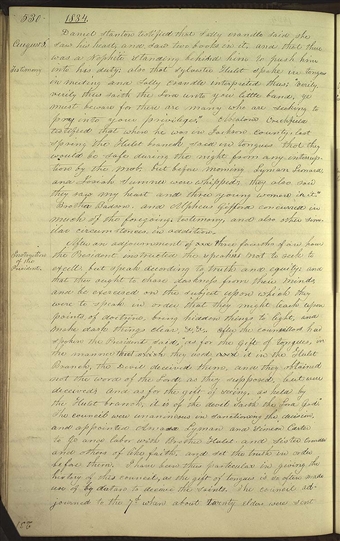 530.
1834
August 3.
Daniel Stanton testified that Sally Crandle said she
saw his heart, and saw two books in it, and that there
was a Nephite standing behind him to push him
Testimony.
into his duty; also that Sylvester Hulet spoke in tongues
in meeting and Sally Crandle interpreted thus: "Verily,
verily thus saith the Lord unto you little band, ye
must beware for there are many who are seeking to
pry into your privileges".
testified that when he was in Jackson County last
spring the Hulet branch said in tongues that they
would be safe during the night from any interrup-
tion by the mob, but before morning Lyman Leonard
and Josiah Sumner were whipped; they also saw
my heart and three young women in it."
Brother Batson and Alpheus Gifford concurred in
much of the foregoing testimony, and also other simi-
lar circumstances in addition.
After an adjournment of one three fourths of an hour
Instruction
of the
President.
the President instructed the speakers not to seek to
excell but speak according to truth and equity; and
that they ought to chase darkness from their minds
and be exercised on the subject upon which they
were to speak in order that they might touch upon
points of doctrine, bring hidden things to light, and
make dark things clear, &c. After the counsellors had
spoken the President said, "as for the gift of tongues, in
the manner which they used it in the Hulet
Branch, the Devil deceived them, and they obtained
not the word of the Lord as they supposed, but were
deceived; and as for the gift of seeing, as held by
the Hulet branch, it is of the devil saith the Lord God."
The council were unanimous in sanctioning the decision,
and appointed Amasa Lyman and Simeon Carter
to go and labor with Brother Hulet and Sister Crandle
and others of like faith, and set the truth in order
before them. I have been thus particular in giving the
history of this council, as the gift of tongues is so often made
use of by Satan to deceive the Saints. The council ad-
journed to the 7th when about twenty elders were sent